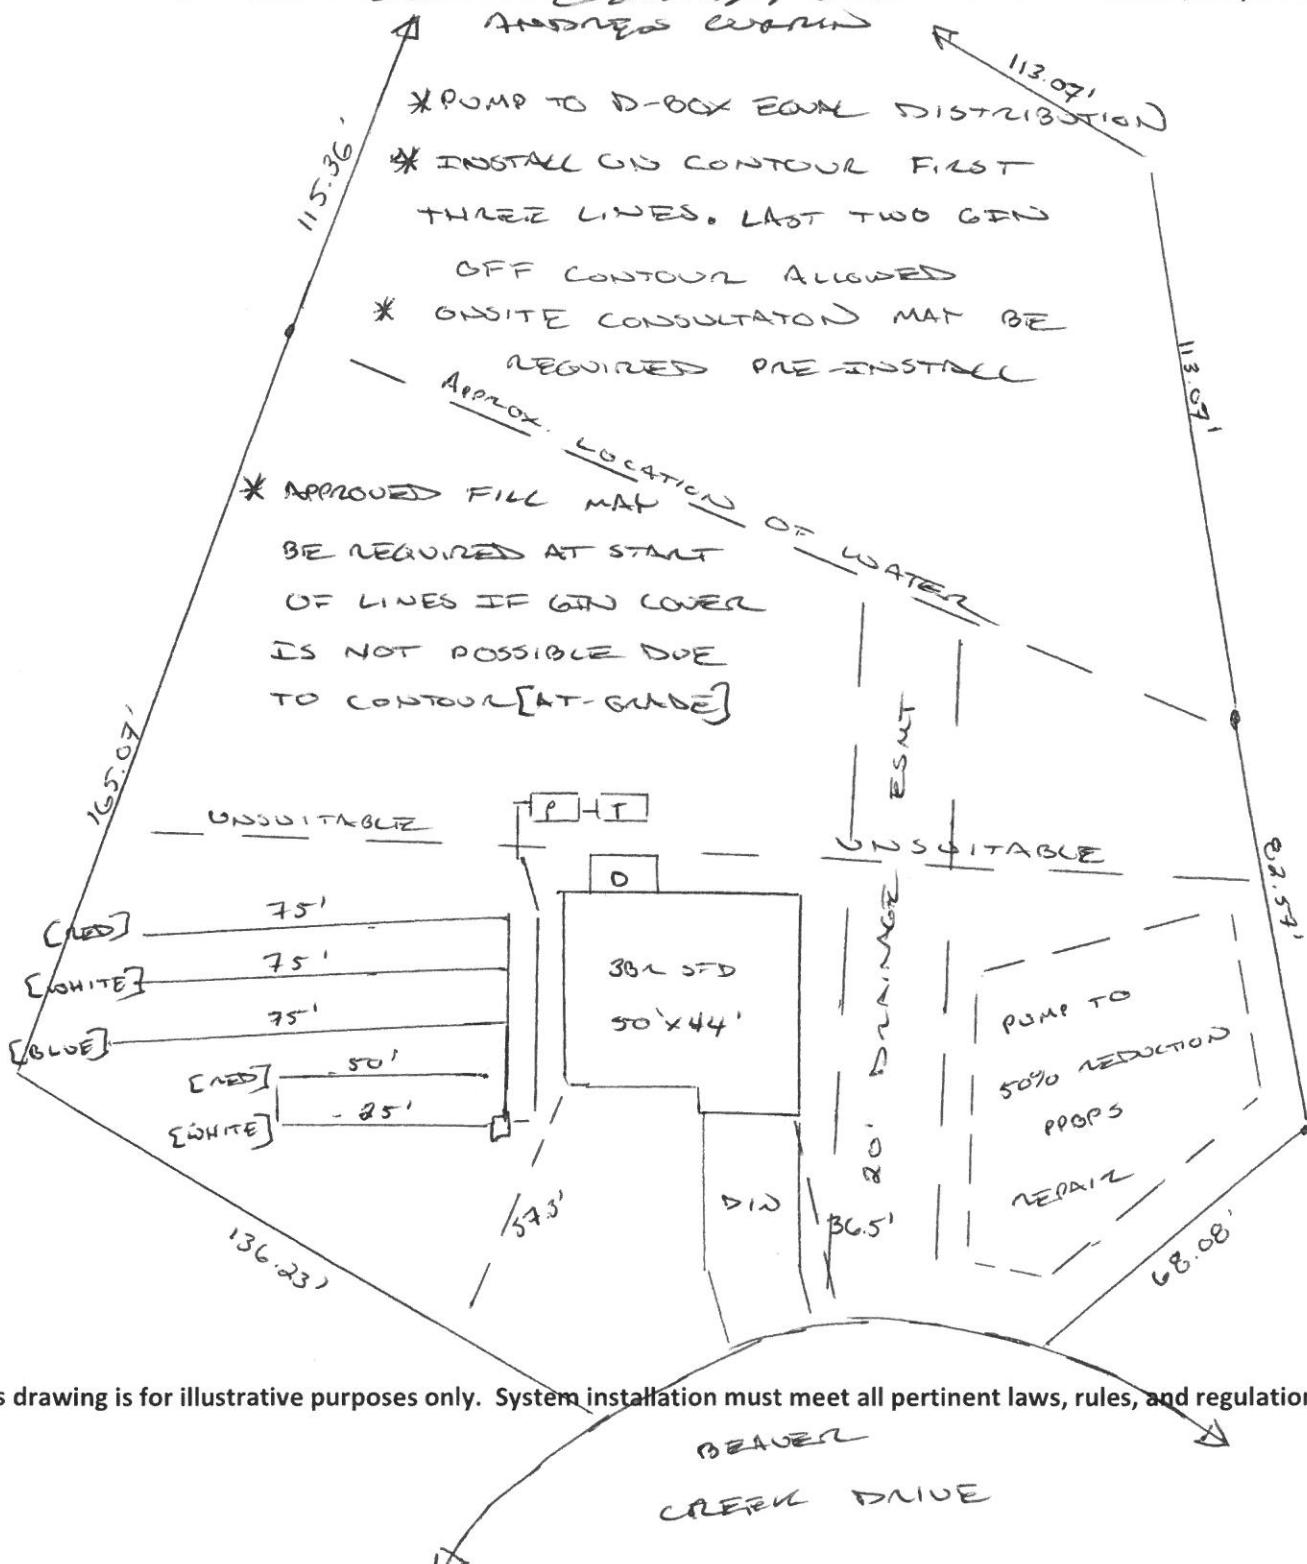 ANDREW CURRIN
113.07'
*PUMP TO D-BOX EQUAL DISTRIBUTION
* INSTALL ON CONTOUR FIRST
THREE LINES. LAST TWO 6IN
OFF CONTOUR ALLOWED
* ONSITE CONSULTATON MAY BE
REQUIRED PRE-INSTALL
115.36'
113.07'
APPROX. LOCATION OF WATER
* APPROVED FILL MAY
BE REQUIRED AT START
OF LINES IF 6IN COVER
IS NOT POSSIBLE DUE
TO CONTOUR [AT-GRADE]
165.07'
20' DRAINAGE ESMT
UNSUITABLE
P T
UNSUITABLE
82.57'
D
[RED] 75'
[WHITE] 75'
[BLUE] 75'
[RED] 50'
[WHITE] 25'
3BR SFD
50'X44'
PUMP TO
50% REDUCTION
PPBPS
REPAIR
D/W
57.3'
36.5'
136.23'
68.08'
s drawing is for illustrative purposes only. System installation must meet all pertinent laws, rules, and regulation
BEAVER
CREEK DRIVE